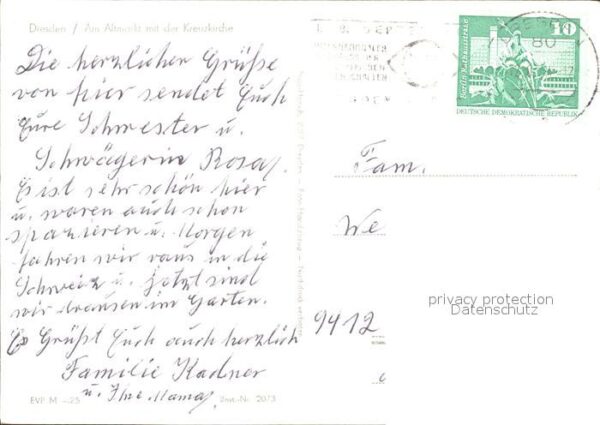 Dresden / Am Altmarkt mit der Kreuzkirche
Die herzlichen Grüße
von hier sendet Euch
Eure Schwester u.
Schwägerin Rosa.
Es ist sehr schön hier
u. waren auch schon
spazieren u. Morgen
fahren wir raus in die
Schweiz u. jetzt sind
wir draussen im Garten.
Es Grüßt Euch auch herzlich
Familie Kadner
u. Ihre Mama
EVP M -.25
Best.-Nr. 2073
80
10
Berlin Rathausstraße
DEUTSCHE DEMOKRATISCHE REPUBLIK
Fam.
We
9412
privacy protection
Datenschutz